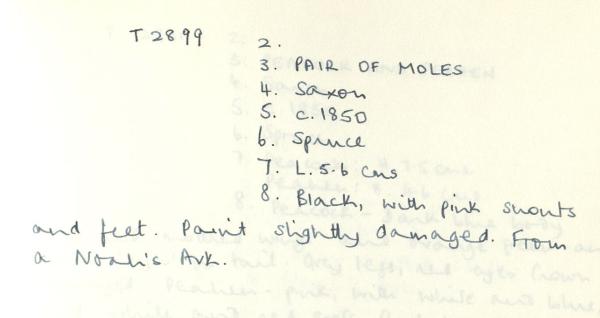 T 2899 2.
3. PAIR OF MOLES
4. Saxon
5. c.1850
6. Spruce
7. L. 5.6 cms
8. Black, with pink snouts
and feet. Paint slightly damaged. From
a Noah's Ark.